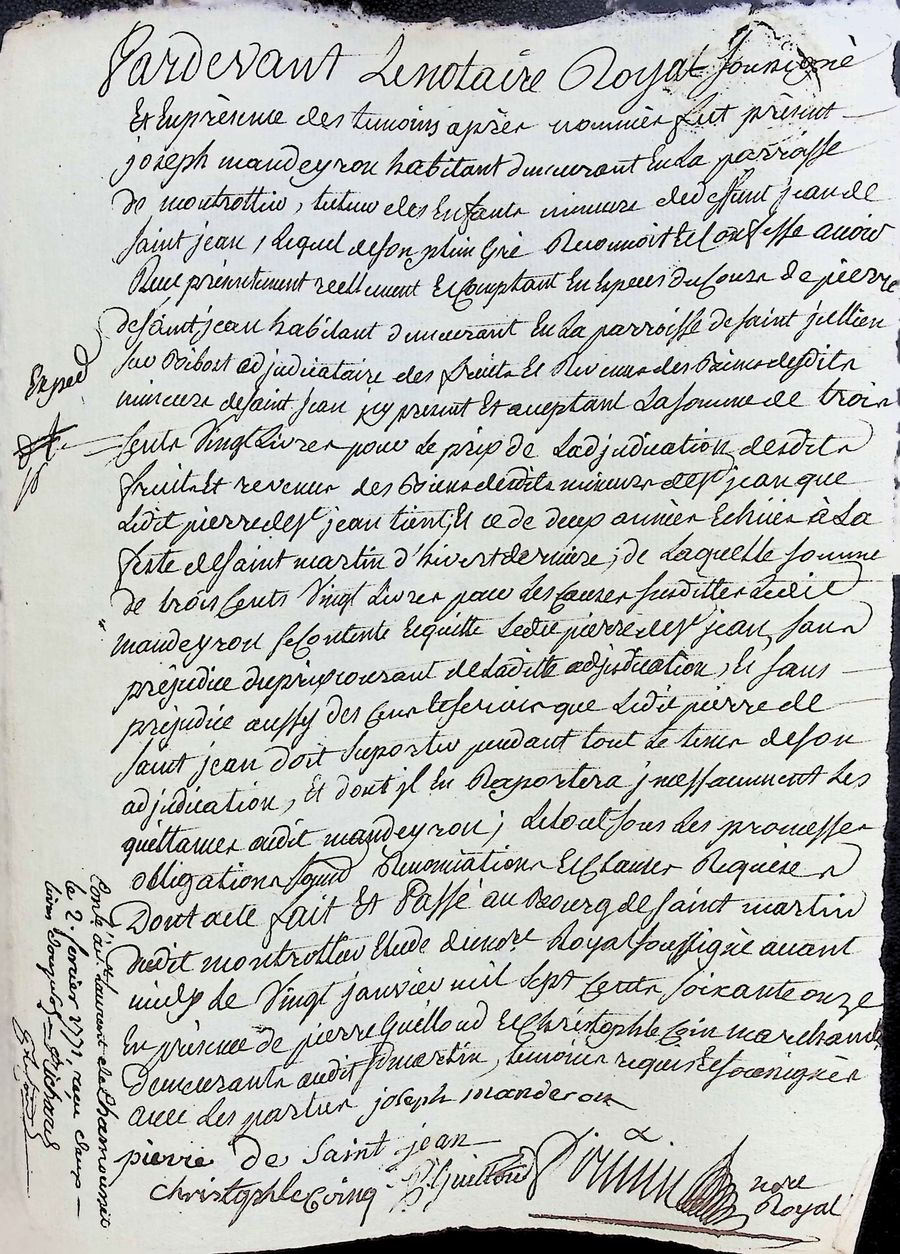 Pardevant Lenotaire Royal soussigné
Et Enprésence des temoins après nommés fut présent
joseph mandeyron habitant demeurant En La parroisse
de montrottier, tuteur des Enfants mineurs de deffunt jean de
saint jean, Lequel deson plein Gré Reconnoit Et Confesse avoir
Reçu présentement reellement Et Comptant En Especes du Cours de pierre
desaint jean habitant demeurant En La parroisse de saint jullien
sur Bibost adjudicataire des fruits Et Revenus des Biens desdits
mineurs desaint jean jcy present Et aceptant La somme de trois
Cents Vingt Livres pour Le prix de Ladjudication desdits
fruits Et revenus des Biens desdits mineurs de St jean que
Ledit pierre de St jean tient, Et ce de deux années Echües à La
feste de saint martin d'hivert derniere; de Laquelle somme
de trois Cents Vingt Livres pour Les Causes susdittes Ledit
mandeyron se Contente Et quitte Ledit pierre de St jean, sans
préjudice du prix courant de Laditte adjudication, Et sans
préjudice aussy des Cens Et servis que Ledit pierre de
saint jean doit suporter pendant tout Le tems deson
adjudication, Et dont jl En Raportera jncessamment Les
quittances audit mandeyron; Letout sous Les promesses
obligations Renonciations Et Clauses Requises
Dont acte fait Et Passé au Bourg de saint martin
dudit montrottier Etude dunore Royal soussigné avant
midy Le Vingt janvier mil sept Cents soixante onze
En présence de pierre Guilloud Et Christophle Coin marchands
demeurants audit St martin, temoins requis Et soussignés
avec Les parties joseph manderon
pierre de saint jean
christophle Coing P Guilloud nore
Royal
Exped
Conlé à St Laurent de Chamousset
le 2. fevrier 1771 reçu